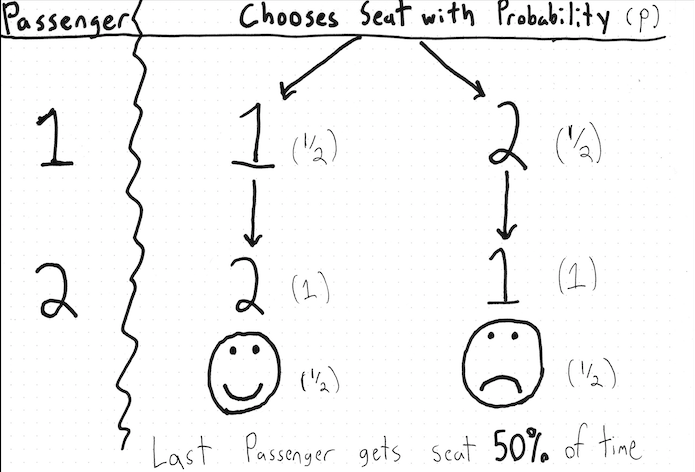 Passenger Chooses Seat with Probability (p)
1 1 (1/2) 2 (1/2)
2 2 (1) 1 (1)
(1/2) (1/2)
Last Passenger gets seat 50% of time